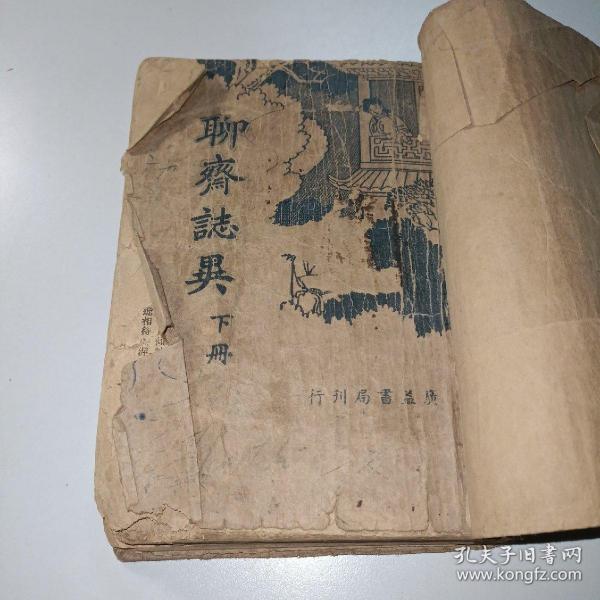 聊齋誌異
下冊
廣益書局刊行
孔夫子旧书网
www.kongfz.com